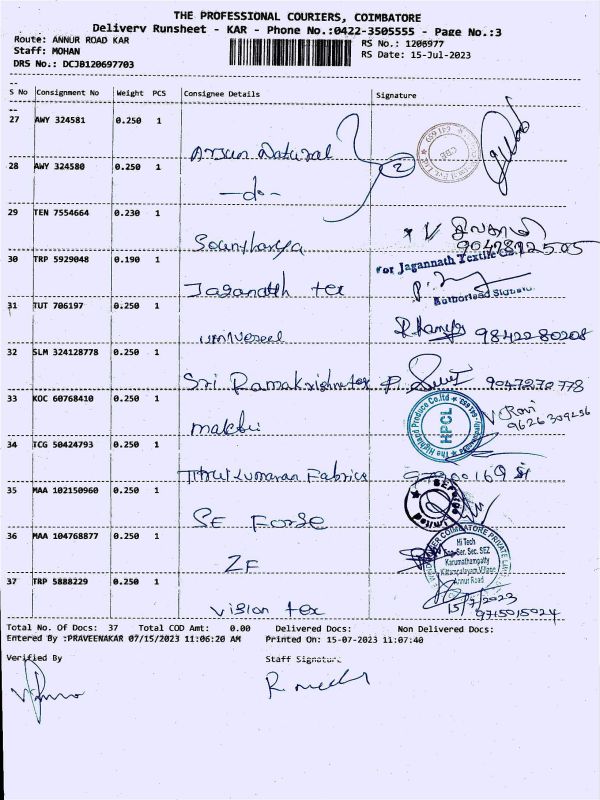 THE PROFESSIONAL COURIERS, COIMBATORE
Delivery Runsheet - KAR - Phone No.:0422-3505555 - Page No.:3
Route: ANNUR ROAD KAR
Staff: MOHAN
DRS No.: DCJB120697703
RS No.: 1206977
RS Date: 15-Jul-2023
S No Consignment No Weight PCS Consignee Details Signature
27 AWY 324581 0.250 1
Arjun Natural
28 AWY 324580 0.250 1
2
-do-
29 TEN 7554664 0.230 1
Sountharya
30 TRP 5929048 0.190 1
For Jagannath Textile Co.
Jaganath tex
Authorised Signatory
31 TUT 706197 0.250 1
9842280208
32 SLM 324128778 0.250 1
Sri Ramakrishna tex 9047272778
33 KOC 60768410 0.250 1
The Highland Produce Co.ltd
HPCL
Ravi
9626309256
34 TCG 50424793 0.250 1
Thirukumaran Fabrics
35 MAA 102150960 0.250 1
SE Forge
SE Forge Limited
36 MAA 104768877 0.250 1
COIMBATORE PRIVATE
Hi Tech
Eng. Ser. Sec. SEZ
Karumathampatty
Kittampalayam Village
Annur Road
ZF
37 TRP 5888229 0.250 1
15/7/2023
9715015024
Vision tex
Total No. Of Docs: 37 Total COD Amt: 0.00 Delivered Docs: Non Delivered Docs:
Entered By :PRAVEENAKAR 07/15/2023 11:06:20 AM Printed On: 15-07-2023 11:07:40
Verified By Staff Signature